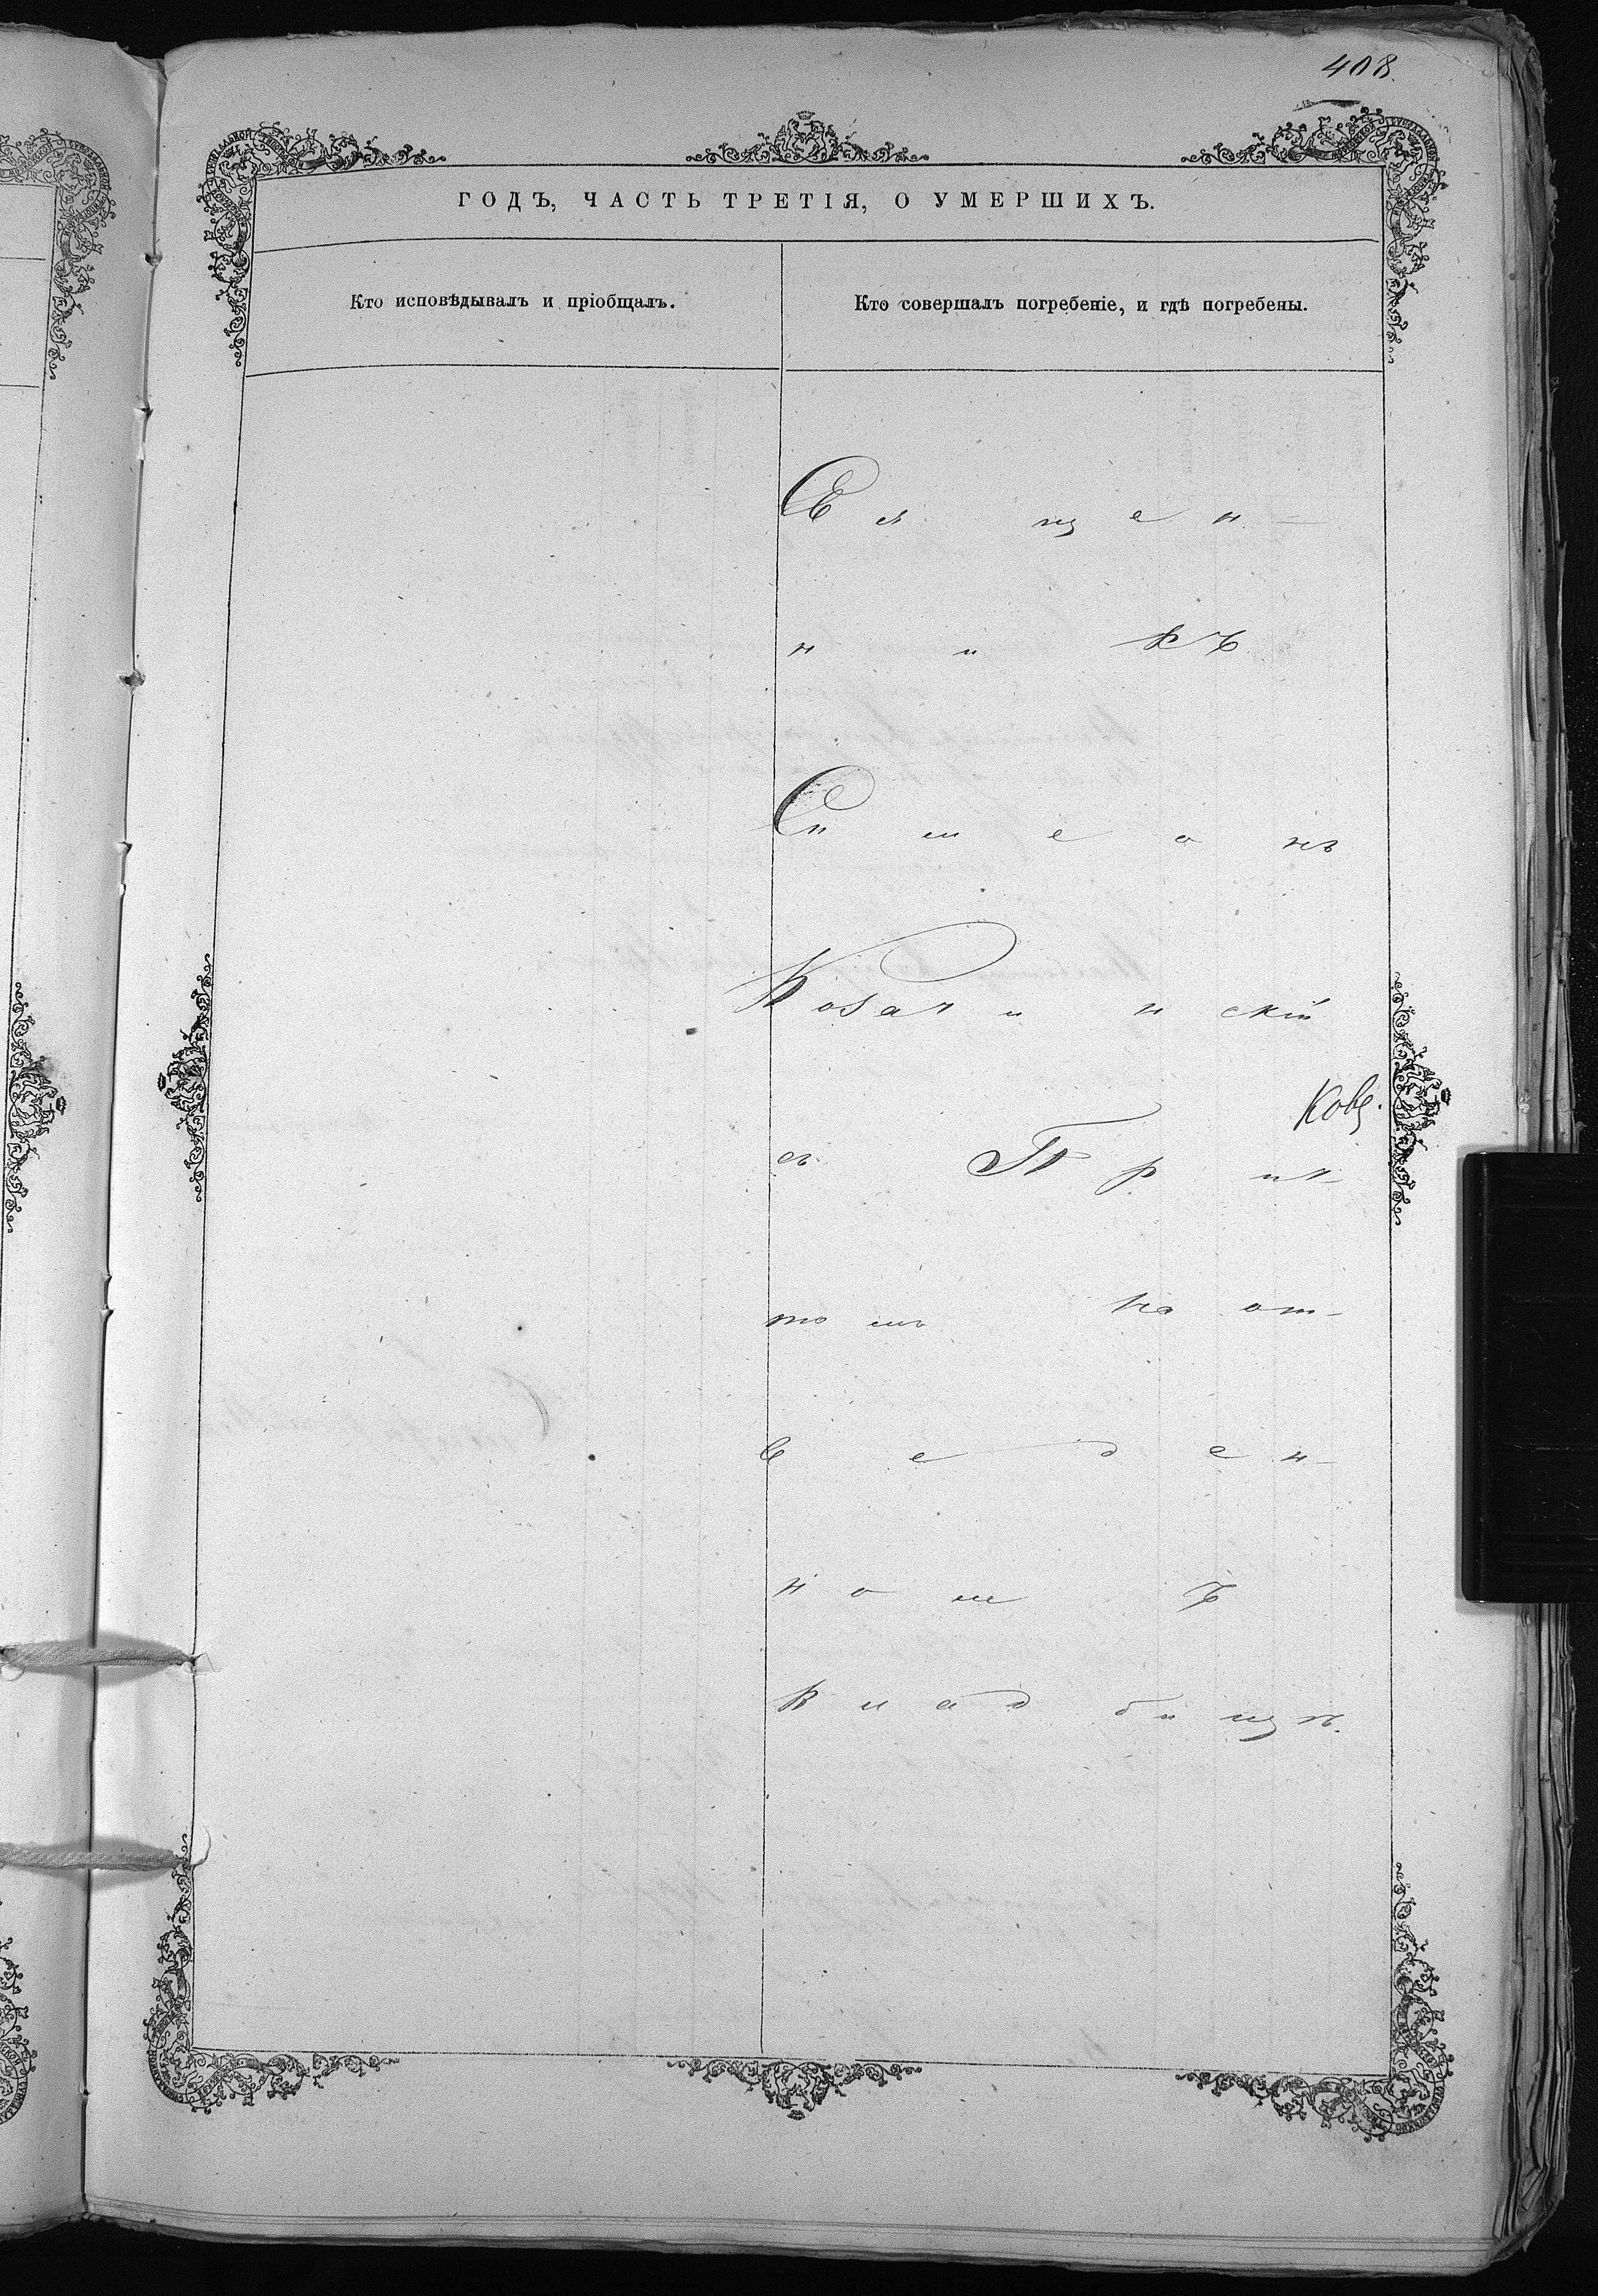 408.
ГОДЪ, ЧАСТЬ ТРЕТІЯ, О УМЕРШИХЪ.
Кто исповѣдывалъ и пріобщалъ.
Кто совершалъ погребеніе, и гдѣ погребены.
Священ-
никъ
Симеонъ
Козачинскій
съ Прич-
томъ на от-
веден-
номъ
кладбищѣ.